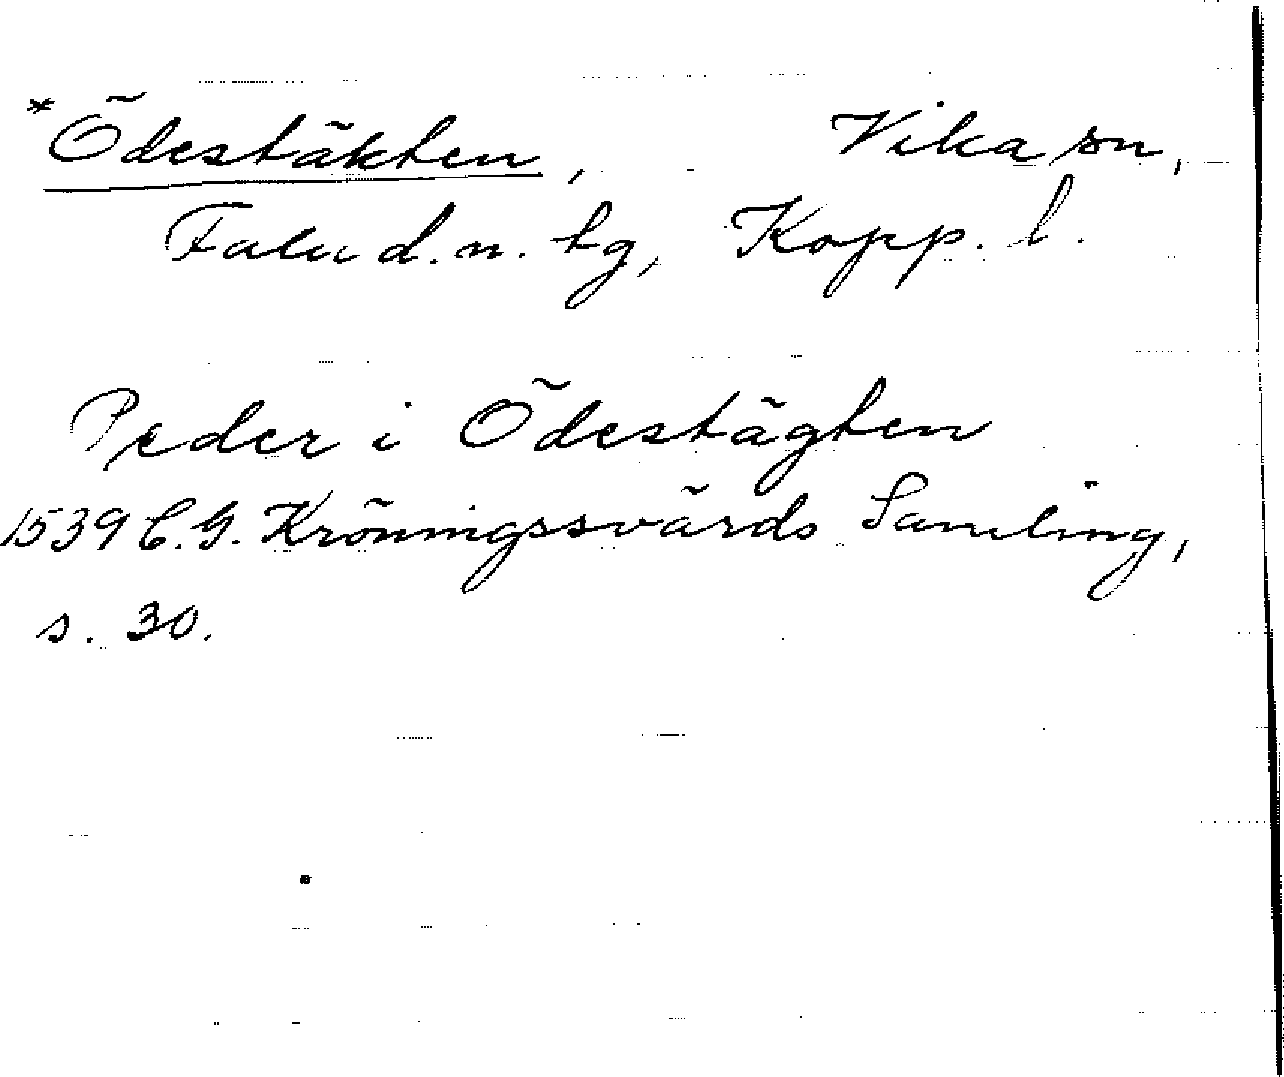 *Ödestäkten, Vika sn,
Falu d. n. tg, Kopp. l.
Peder i Ödestägten
1539 C. G. Kröningssvärds Samling,
s. 30.